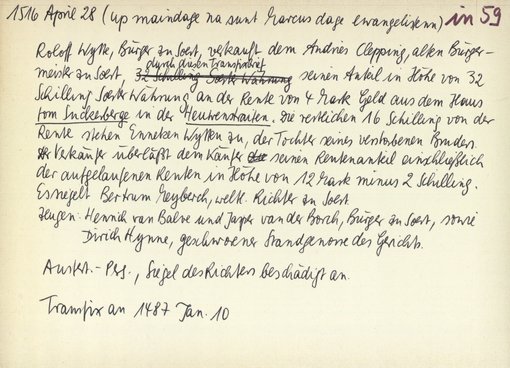 1516 April 28 (up maindage na sunt Marcus dage ewangelisenn) in 59
Roloff Wytte, Bürger zu Soest, verkauft dem Andries Clepping, alten Bürger-
durch diesen Transfixbrief
meister zu Soest, 32 Schilling Soester Währung seinen Anteil in Höhe von 32
Schilling Soester Währung an der Rente von 4 Mark Geld aus dem Haus
tom Suckerberge in der Heuverstraiten. Die restlichen 16 Schilling von der
Rente stehen Enneken Wytten zu, der Tochter seines verstorbenen Bruders.
Verkäufer überläßt dem Käufer seinen Rentenanteil einschließlich
der aufgelaufenen Renten in Höhe von 12 Mark minus 2 Schilling.
Es siegelt Bertram Meyberch, weltl. Richter zu Soest
Zeugen: Henrich van Balve und Jasper van der Borch, Bürger zu Soest, sowie
Dirich Hynne, geschworener Standgenosse des Gerichts.
Ausfert.- Perg., Siegel des Richters beschädigt an.
Transfix an 1487 Jan. 10